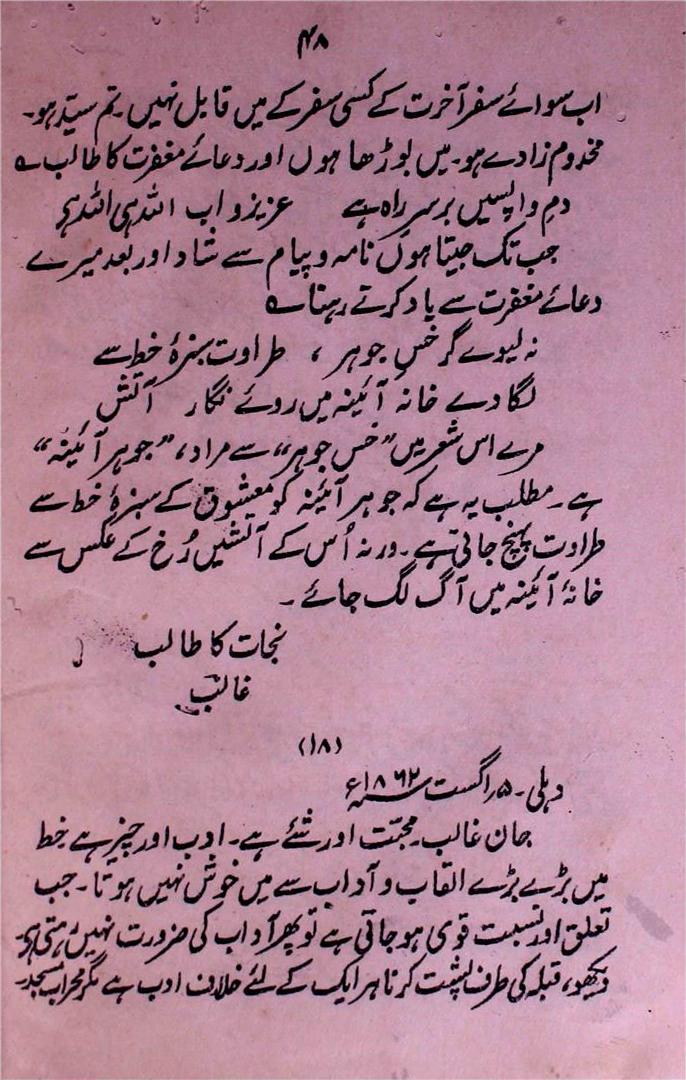 ۴۸
اب سوائے سفر آخرت کے کسی سفر کے میں قابل نہیں۔ تم سیّد ہو۔
مخدوم زادے ہو۔ میں بوڑھا ہوں اور دعائے مغفرت کا طالب ؎
دمِ واپسیں برسرِ راہ ہے عزیزو اب اللہ ہی اللہ ہے
جب تک جیتا ہوں نامہ و پیام سے شاد اور بعد میرے
دعائے مغفرت سے یاد کرتے رہنا ؎
نہ لیوے گر خسِ جوہر ، طراوت سبزۂ خط سے
لگا دے خانۂ آئینہ میں روئے نگار آتش
مرے اس شعر میں ”خسِ جوہر“ سے مراد، ”جوہر آئینہ“
ہے۔ مطلب یہ ہے کہ جوہر آئینہ کو معشوق کے سبزۂ خط سے
طراوت پہنچ جاتی ہے۔ ورنہ اُس کے آتشیں رُخ کے عکس سے
خانۂ آئینہ میں آگ لگ جائے۔
نجات کا طالب
غالب
(۱۸)
دہلی۔ ۵؍ اگست ۱۸۶۲ء
جان غالب۔ محبّت اور شئے ہے۔ ادب اور چیز ہے خط
میں بڑے بڑے القاب و آداب سے میں خوش نہیں ہوتا۔ جب
تعلق اور نسبت قوی ہو جاتی ہے تو پھر آداب کی ضرورت نہیں رہتی ہے۔
دیکھو، قبلہ کی طرف پشت کرنا ہر ایک کے لئے خلاف ادب ہے مگر محراب مسجد۔